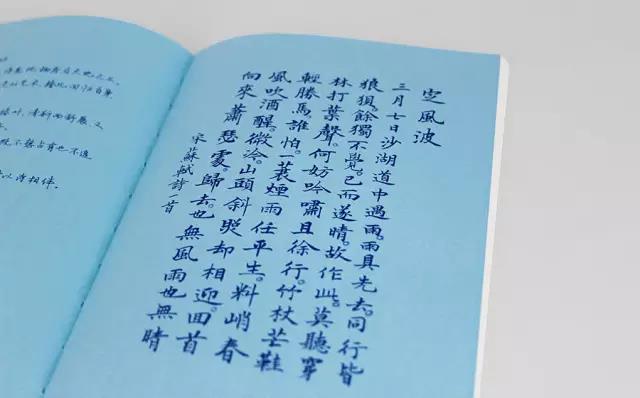 又
以诗相伴。
定風波
三月七日沙湖道中遇雨。雨具先去。同行皆
狼狽。餘獨不覺。已而遂晴。故作此。莫聽穿
林打葉聲。何妨吟嘯且徐行。竹杖芒鞋
輕勝馬。誰怕。一蓑煙雨任平生。料峭春
風吹酒醒。微冷。山頭斜照却相迎。回首
向來蕭瑟處。歸去。也無風雨也無晴
宋蘇軾詩一首